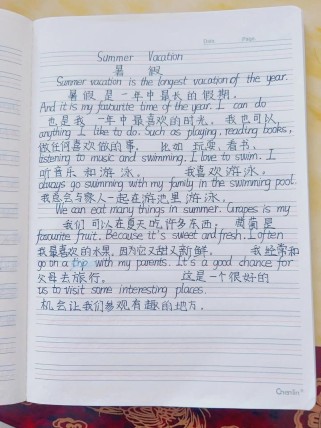 Date Page
Summer Vacation
暑假
Summer vacation is the longest vacation of the year.
暑假是一年中最长的假期.
And it is my favourite time of the year. I can do
也是我一年中最喜欢的时光. 我也可以,
anything I like to do. Such as playing, reading books,
做任何喜欢做的事, 比如 玩耍. 看书、
listening to music and swimming. I love to swim. I
听音乐和游泳. 我喜欢游泳.
always go swimming with my family in the swimming pool.
我总会与家人一起在游池里游泳.
We can eat many things in summer. Grapes is my
我们可以在夏天吃许多东西, 葡萄是
favourite fruit. Because it's sweet and fresh. I often
我最喜欢的水果. 因为它又甜又新鲜. 我经常和
go on a trip with my parents. It's a good chance for
父母去旅行. 这是一个很好的
us to visit some interesting places.
机会让我们参观有趣的地方.
Chenlin